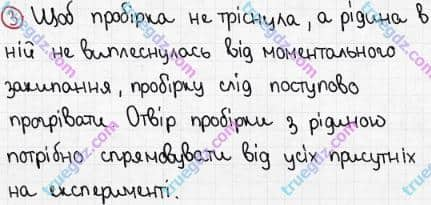 ③ Щоб пробірка не тріснула, а рідина в
ній не виплеснулась від моментального
закипання, пробірку слід поступово
прогрівати. Отвір пробірки з рідиною
потрібно спрямовувати від усіх присутніх
на експерименті.